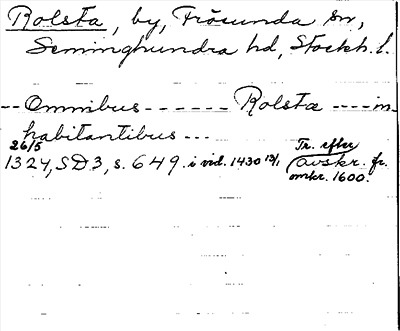 Rolsta, by, Frösunda sn,
Seminghundra hd, Stockh. l.
--Omnibus ------ Rolstæ ---- in-
habitantibus ---
26/5 1324, SD3, s. 649. i vid. 1430 13/1 Tr. efter avskr. fr. omkr. 1600.